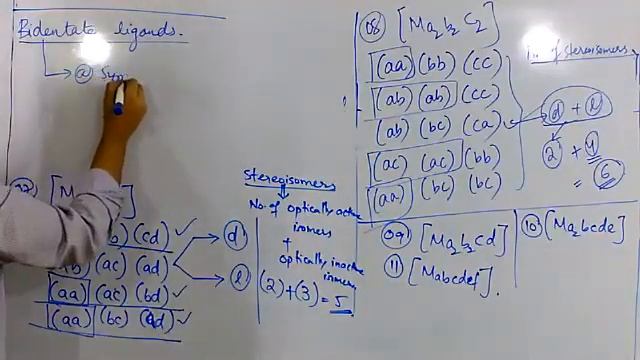 Bidentate ligands.
@ Sym
[M
b) (cd) ✓
(ac) (ad)
(aa) (ac) (bd) ✓
(aa) (bc) (ad) ✓
d
l
Stereoisomers
No. of optically active
isomers
+
optically inactive
isomers
(2) + (3) = 5
08 [Ma₂b₂C₂]
(aa) (bb) (cc)
(ab) (ab) (cc)
(ab) (bc) (ca)
(ac) (ac) (bb)
(aa) (bc) (bc)
of stereoisomers
d + l
2 + 4
= 6
09 [Ma₂b₂cd]
10 [Ma₂bcde]
11 [Mabcdef].